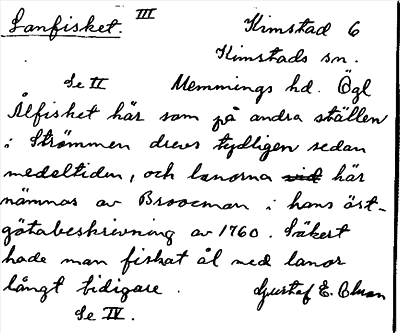 Lanfisket. III Kimstad 6
Kimstads sn.
Se II Memmings hd. Ögl
Ålfisket här som på andra ställen
i Strömmen drevs tydligen sedan
medeltiden, och lanorna vid här
nämnas av Broocman i hans öst-
götabeskrivning av 1760. Säkert
hade man fiskat ål med lanor
långt tidigare. Gustaf E. Olsson
Se IV.